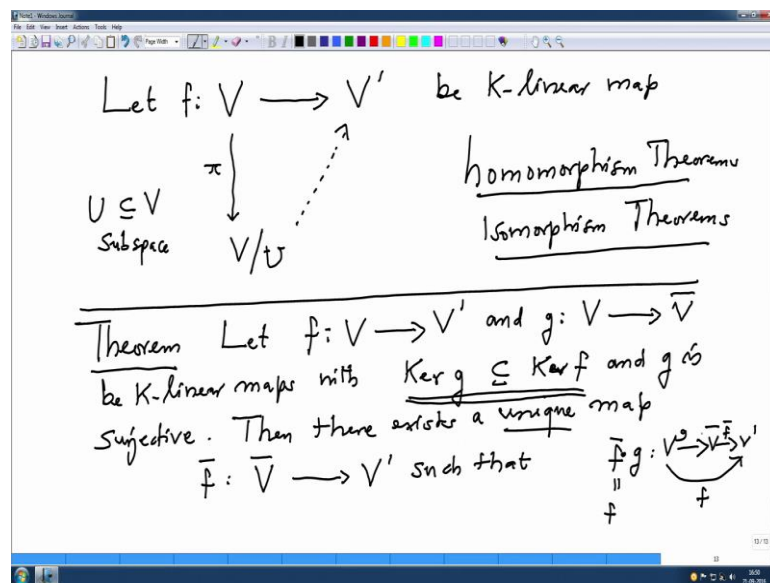 Note1 - Windows Journal
File Edit View Insert Actions Tools Help
Page Width
B I
Let f: V ⟶ V' be K-linear map
π
homomorphism Theorems
U ⊆ V
Subspace
V/U
Isomorphism Theorems
Theorem Let f: V ⟶ V' and g: V ⟶ V̅
be K-linear maps with Ker g ⊆ Ker f and g is
surjective. Then there exists a unique map
f̅: V̅ ⟶ V' such that
f̅∘g: V g⟶ V̅ f̅⟶ V'
=
f
f
13/13
16:50